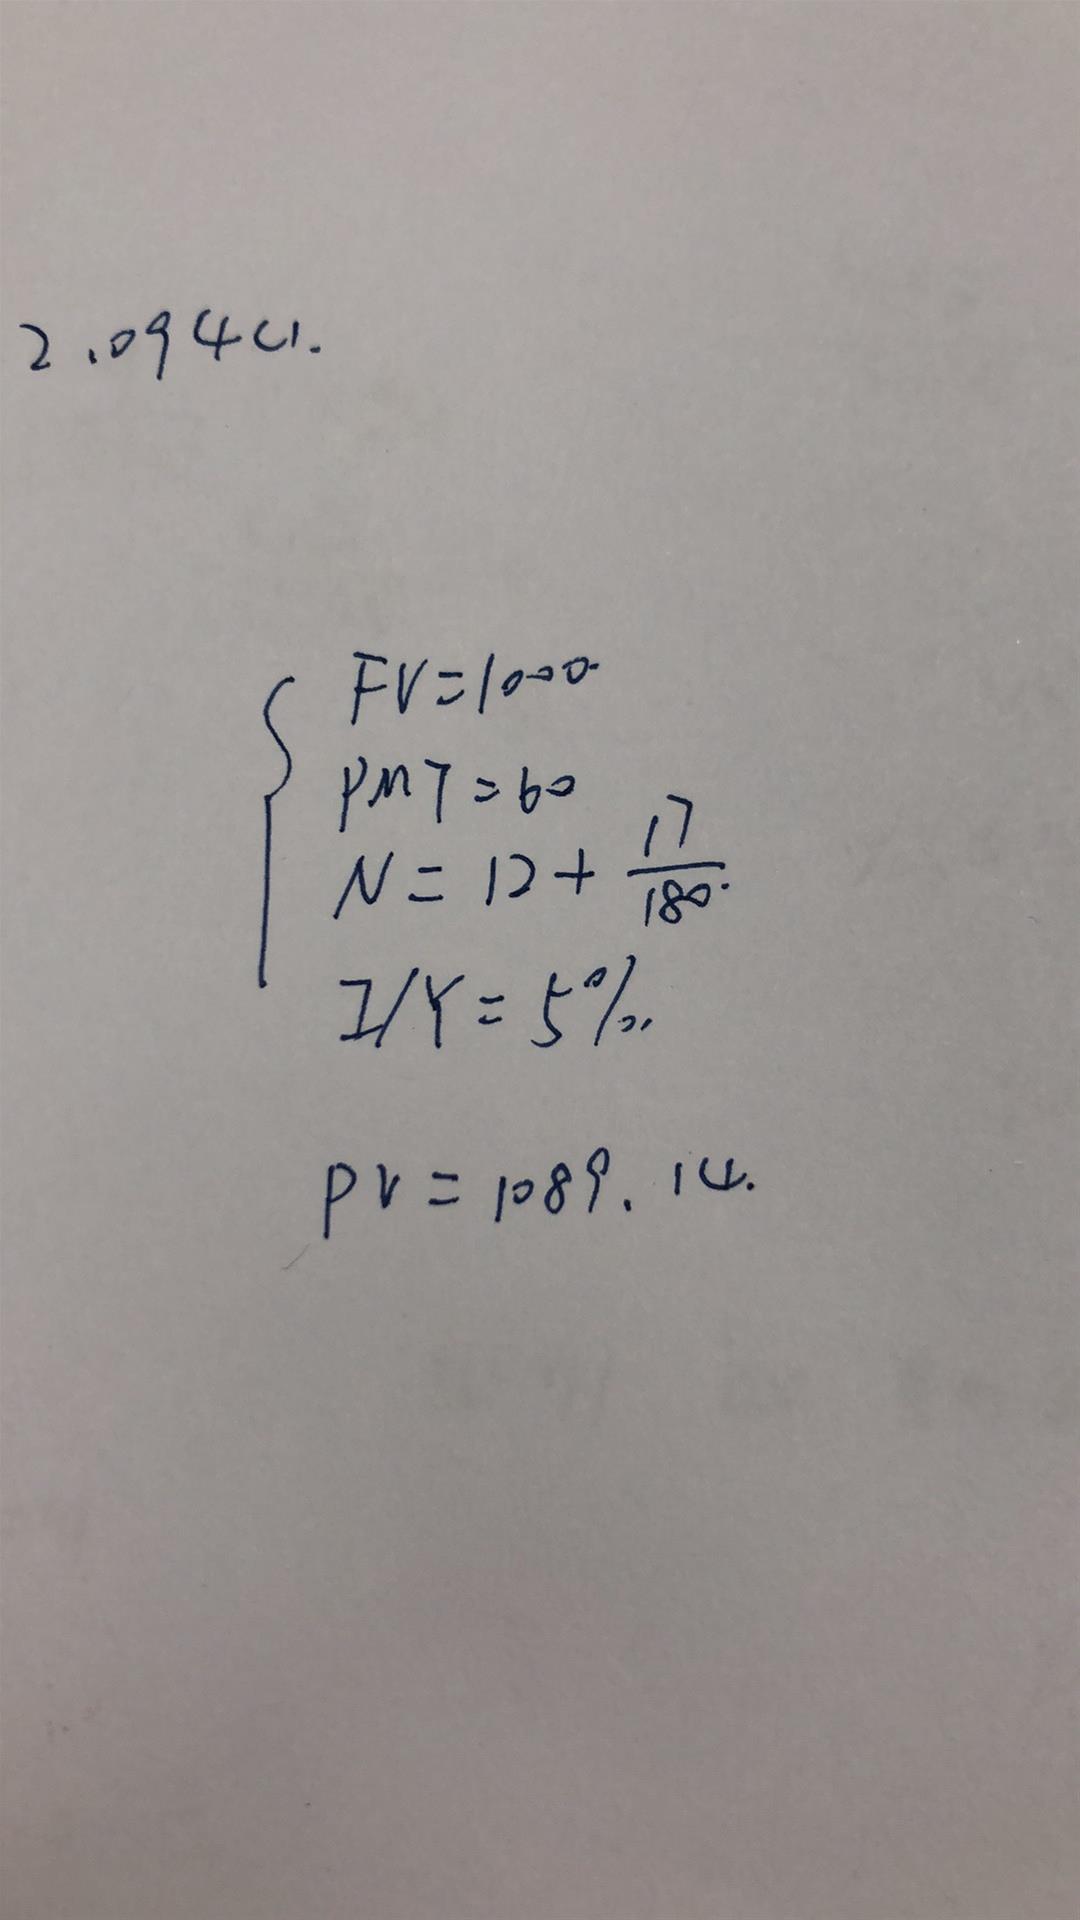 2.0944.
FV=1000.
PMT=60
N=12+17/180.
I/Y=5%.
PV=1089.14.